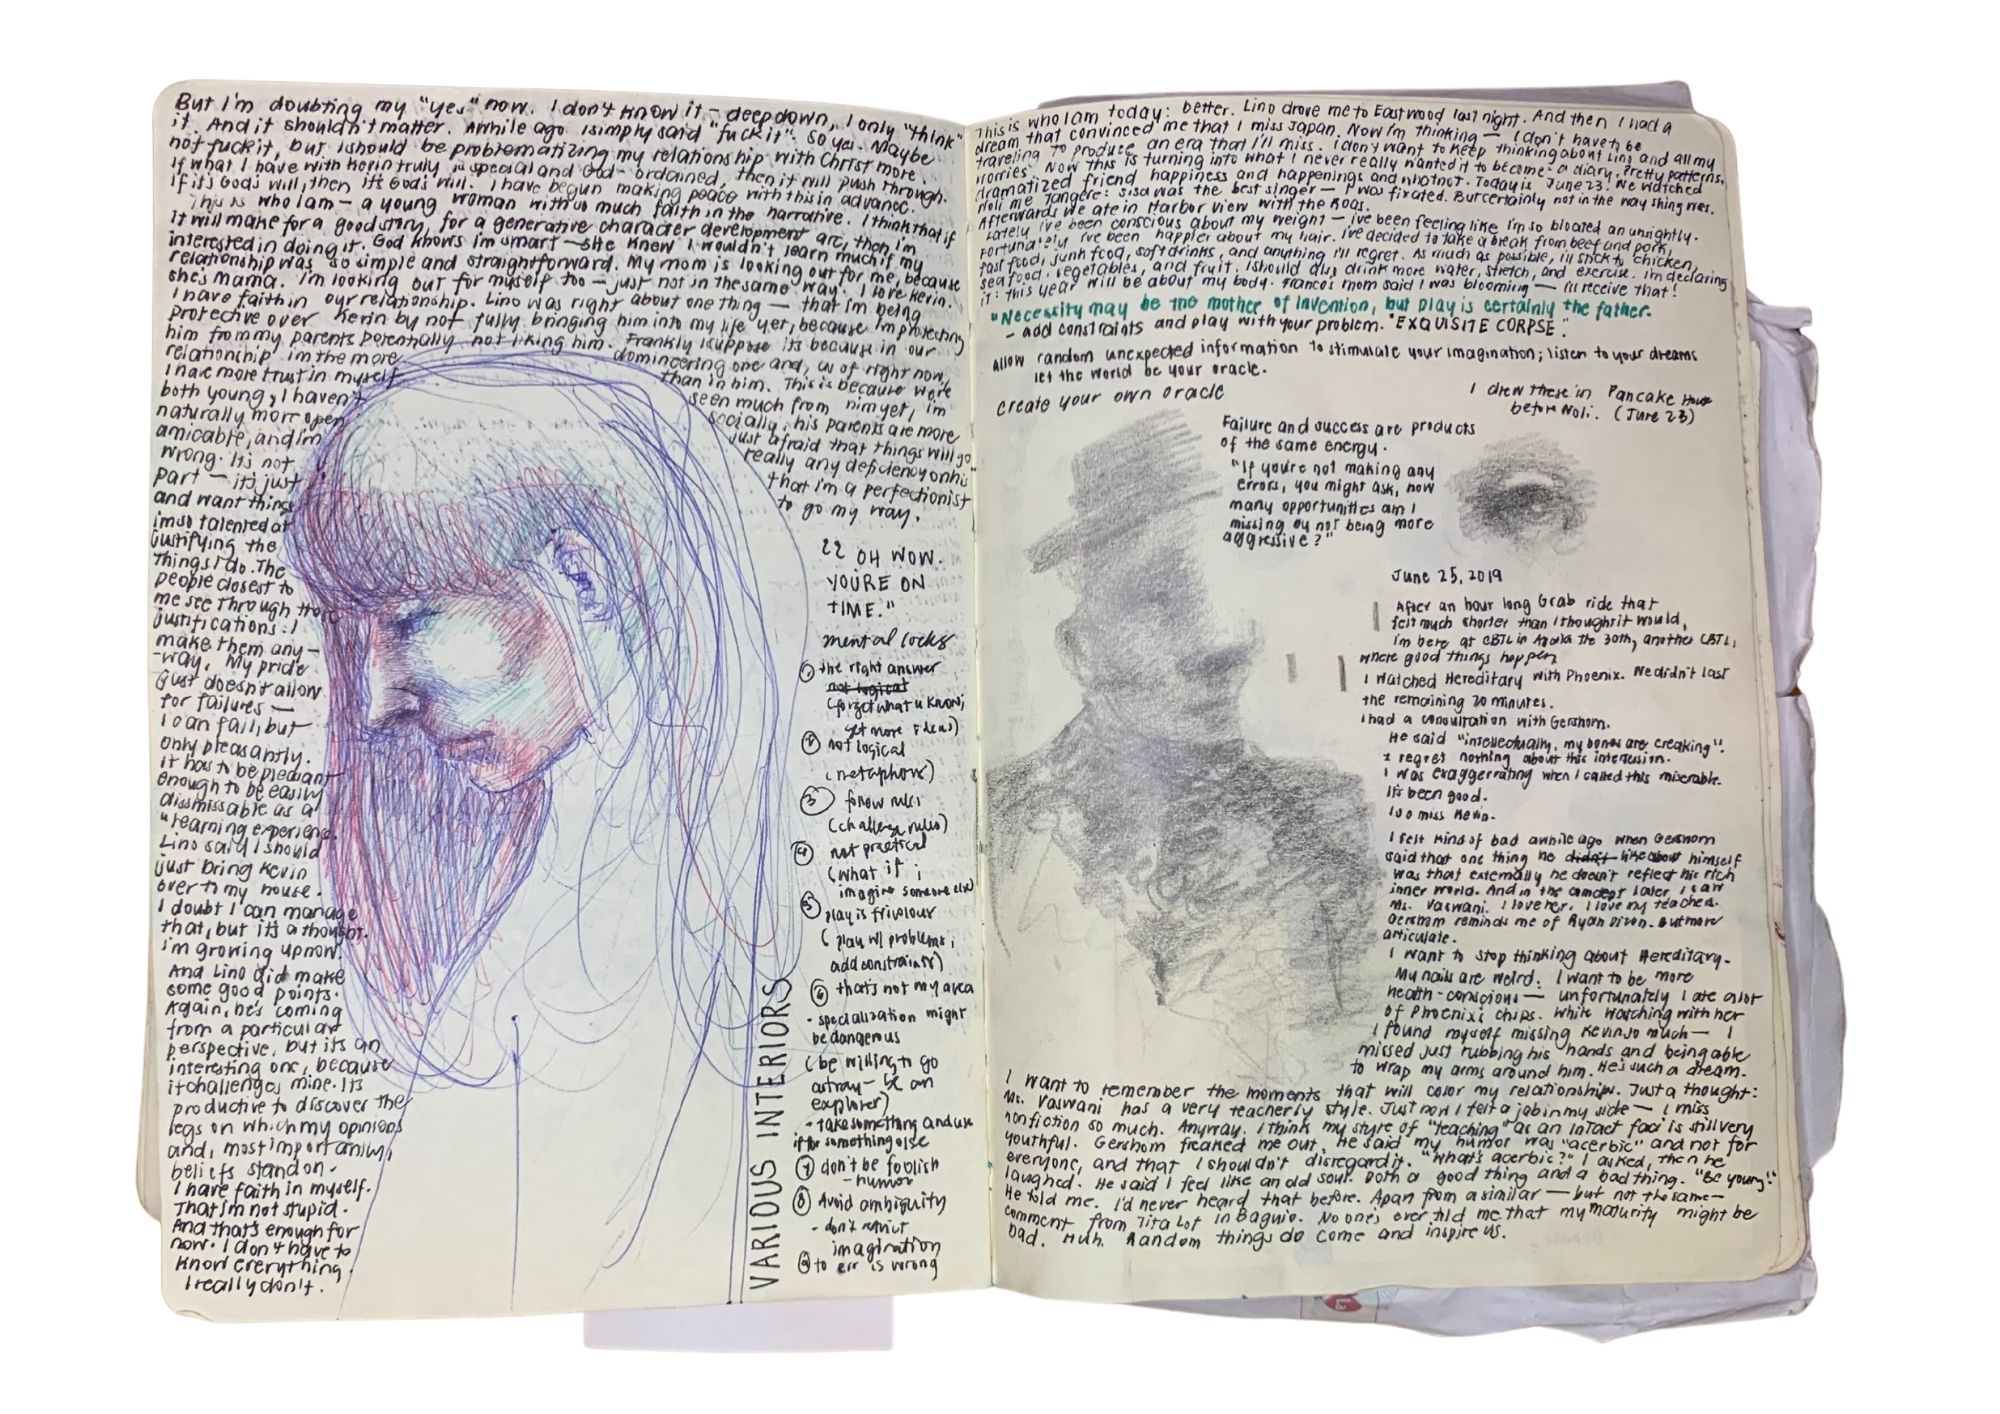 But I'm doubting my "yes" now. I don't know it – deep down, I only "think"
it. And it shouldn't matter. Awhile ago I simply said "fuck it". So yes. Maybe
not fuck it, but I should be problematizing my relationship with Christ more.
If what I have with Kevin truly is special and God-ordained, then it will push through.
If it's God's will, then it's God's will. I have begun making peace with this in advance.
This is who I am – a young woman with so much faith in the narrative. I think that if
it will make for a good story, for a generative character development arc, then I'm
interested in doing it. God knows I'm smart – she knew I wouldn't learn much if my
relationship was so simple and straightforward. My mom is looking out for me, because
she's mama. I'm looking out for myself too – just not in the same way. I love Kevin.
I have faith in our relationship. Lino was right about one thing – that I'm being
protective over Kevin by not fully bringing him into my life yet, because I'm protecting
him from my parents potentially not liking him. Frankly I suppose it's because in our
relationship I'm the more domineering one and, as of right now,
I have more trust in myself than in him. This is because we're
both young, I haven't seen much from him yet, I'm
naturally more open socially, his parents are more
amicable, and I'm just afraid that things will go
wrong. It's not really any deficiency on his
part – it's just that I'm a perfectionist
and want things to go my way.
I'm so talented at
justifying the
things I do. The
people closest to
me see through those
justifications. I
make them any-
-way. My pride
just doesn't allow
for failures –
I can fail, but
only pleasantly.
it has to be pleasant
enough to be easily
dissmissable as a
"learning experience.
Lino said I should
just bring Kevin
over to my house.
I doubt I can manage
that, but it's a thought.
I'm growing up now.
And Lino did make
some good points.
Again, he's coming
from a particular
perspective, but it's an
interesting one, because
it challenges mine. It's
productive to discover the
legs on which my opinions
and, most importantly,
beliefs stand on.
I have faith in myself.
That I'm not stupid.
And that's enough for
now. I don't have to
know everything.
I really don't.
22 OH WOW.
YOU'RE ON
TIME."
mental locks
① the right answer
not logical
(forget what u know;
get more ideas)
② not logical
(metaphors)
③ follow rules
(challenge rules)
④ not practical
(what if;
imagine someone else)
⑤ play is frivolous
(play w/ problems;
add constraints)
⑥ that's not my area
- specialization might
be dangerous
(be willing to go
astray – be an
explorer)
- take something and use
it for something else
⑦ don't be foolish
- humor
⑧ Avoid ambiguity
- don't restrict
imagination
⑨ to err is wrong
VARIOUS INTERIORS
This is who I am today: better. Lino drove me to Eastwood last night. And then I had a
dream that convinced me that I miss Japan. Now I'm thinking – I don't have to be
traveling to produce an era that I'll miss. I don't want to keep thinking about Lino and all my
worries. Now this is turning into what I never really wanted it to become – a diary. Pretty patterns,
dramatized friend happiness and happenings and whatnot. Today is June 23. We watched
Noli me Tangere: Sisa was the best singer – I was fixated. But certainly not in the way
Afterwards we ate in Harbor View with the Roas.
Lately I've been conscious about my weight – I've been feeling like I'm so bloated an unsightly.
Fortunately I've been happier about my hair. I've decided to take a break from beef and pork,
fast food, junk food, soft drinks, and anything I'll regret. As much as possible, I'll stick to chicken,
seafood, vegetables, and fruit. I should also drink more water, stretch, and exercise. I'm declaring
it: this year will be about my body. Franco's mom said I was blooming – I'll receive that!
"Necessity may be the mother of invention, but play is certainly the father.
– add constraints and play with your problem. "EXQUISITE CORPSE".
Allow random unexpected information to stimulate your imagination; listen to your dreams
let the world be your oracle.
create your own oracle
I drew these in Pancake House
before Noli. (June 23)
Failure and success are products
of the same energy.
"If you're not making any
errors, you might ask, how
many opportunities am I
missing by not being more
aggressive?"
June 25, 2019
After an hour long Grab ride that
felt much shorter than I thought it would,
I'm here at CBTL in Ayala the 30th, another CBTL,
where good things happen.
I watched Hereditary with Phoenix. We didn't last
the remaining 20 minutes.
I had a consultation with Gershom.
He said "intellectually, my bones are creaking".
I regret nothing about this intersession.
I was exaggerrating when I called this miserable.
It's been good.
I do miss Kevin.
I felt kind of bad awhile ago when Gershom
said that one thing he didn't like about himself
was that externally he doesn't reflect his rich
inner world. And in the comdept later, I saw
Ms. Vaswani. I love her. I love my teachers.
Gershom reminds me of Ryan Dixon. But more
articulate.
I want to stop thinking about Hereditary.
My nails are weird. I want to be more
health-conscious – unfortunately I ate a lot
of Phoenix's chips. While watching with her
I found myself missing Kevin so much – I
missed just rubbing his hands and being able
to wrap my arms around him. He's such a dream.
I want to remember the moments that will color my relationships. Just a thought:
Ms. Vaswani has a very teacherly style. Just now I felt a jab in my side – I miss
nonfiction so much. Anyway. I think my style of "teaching" as an InTact faci is still very
youthful. Gershom freaked me out. He said my humor was "acerbic" and not for
everyone, and that I shouldn't disregard it. "What's acerbic?" I asked, then he
laughed. He said I feel like an old soul. Both a good thing and a bad thing. "Be young!"
He told me. I'd never heard that before. Apart from a similar – but not the same –
comment from Tita Lot in Baguio. No one's ever told me that my maturity might be
bad. Huh. Random things do come and inspire us.